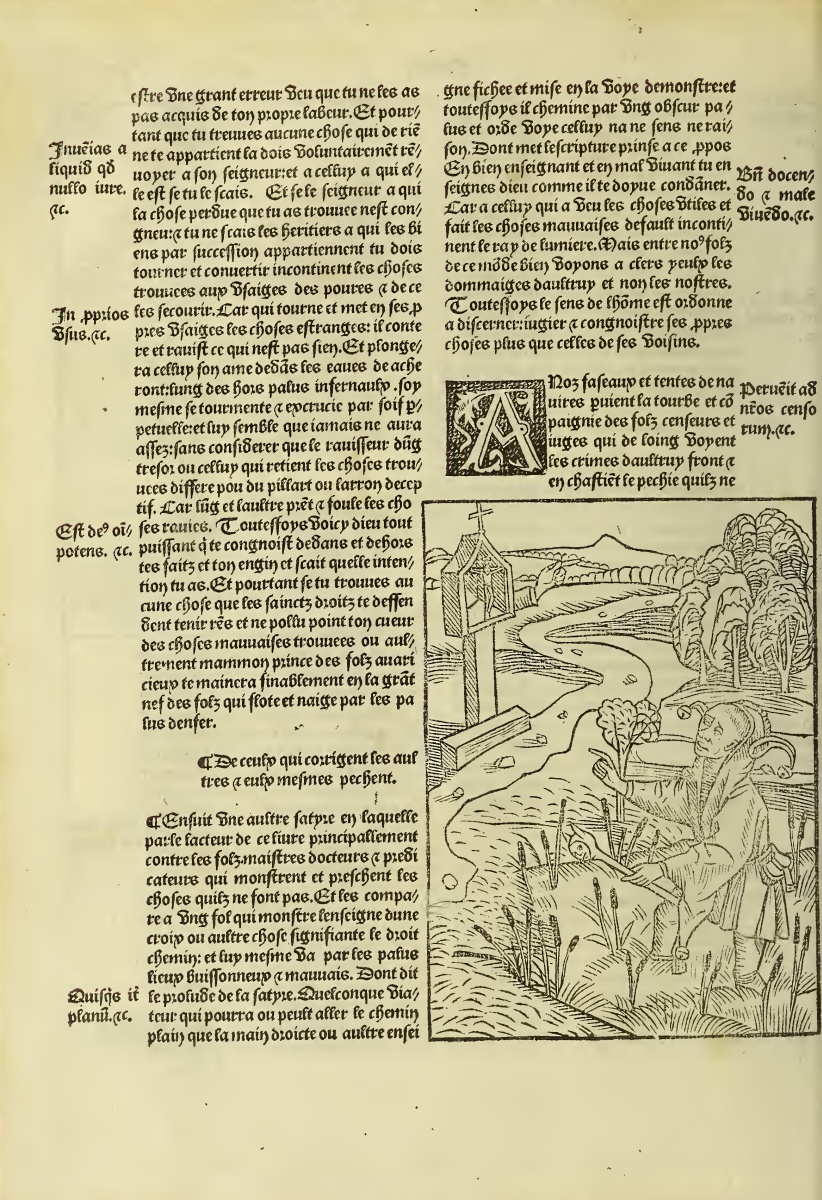 estre vne grant erreur veu que tu ne les as
pas acquis de ton propre labeur. Et pour/
tant que tu treuues aucune chose qui de riē
ne te appartient la dois voluntairemēt rē/
uoyer a son seigneur: et a celluy a qui el/
le est se tu le scais. Et se le seigneur a qui
la chose perdue que tu as trouuee nest con/
gneu: ⁊ tu ne scais les heritiers a qui les bi
ens par succession appartiennent tu dois
tourner et conuertir incontinent les choses
trouuees aux vsaiges des poures ⁊ de ce
les secourir. Car qui tourne et met en ses ꝓ
pres vsaiges les choses estranges: il conte
re et rauist ce qui nest pas sien. Et plonge/
ra celluy son ame dedās les eaues de ache
ront: lung des hors palus infernaulx. soy
mesme se tourmente ⁊ excrucie par soif ꝑ/
petuelle: et luy semble que iamais ne aura
assez: sans considerer que le rauisseur dūg
tresor ou celluy qui retient les choses trou/
uees differe pou du pillart ou larron decep
tif. Car lūg et laultre prēt ⁊ foule les cho
ses rauies. Toutesfoys voicy dieu tout
puissant q̄ te congnoist dedans et dehors
tes faitz et ton engin et scait quelle inten/
tion tu as. Et pourtant se tu trouues au
cune chose que les sainctz droitz te deffen
dent tenir rēs et ne pollu point ton cueur
des choses mauuaises trouuees ou aul/
trement mammon prince des folz auari
cieux te mainera finablement en la grāt
nef des folz qui flote et naige par les pa
lus denfer.
¶ De ceulx qui corrigent les aul
tres ⁊ eulx mesmes pechent.
¶ Ensuit vne aultre satyre en laquelle
parle lacteur de ce liure principallement
contre les folz. maistres docteurs ⁊ predi
cateurs qui monstrent et preschent les
choses quilz ne font pas. Et les compa/
re a vng fol qui monstre lenseigne dune
croix ou aultre chose signifiante le droit
chemin: et luy mesme va par les palus
lieux buissonneux ⁊ mauuais. Dont dit
le prolude de la satyre. Quelconque via/
teur qui pourra ou peult aller le chemin
plain que la main droicte ou aultre ensei
Inuēias a
liquid qd
nullo iure.
⁊c.
In ꝓprios
vsus. ⁊c.
Est de⁹ oī/
potens. ⁊c.
Quisq̄s it
planū. ⁊c.
gne fichee et mise en la voye demonstre: et
toutesfoys il chemine par vng obscur pa/
lus et orde voye celluy na ne sens ne rai/
son. Dont met lescripture prinse a ce ꝓpos
En bien enseignant et en mal viuant tu en
seignes dieu comme il te doyue condāner.
Car a celluy qui a veu les choses vtiles et
fait les choses mauuaises default inconti/
nent le ray de lumiere. Mais entre no⁹ folz
de ce mōde bien voyons a clers yeulx les
dommaiges daultruy et non les nostres.
Toutesfoys le sens de lhōme est ordonne
a discerner: iugier ⁊ congnoistre ses ꝓpres
choses plus que celles de ses voisins.
A Noz faseaux et tentes de na
uires ꝑuient la tourbe et cō
paignie des folz censeurs et
iuges qui de loing voyent
les crimes daultruy front ⁊
en chastiēt le pechie quilz ne
Bn̄ docen/
do ⁊ male
viuēdo. ⁊c.
Peruēit ad
nr̄os censo
rum. ⁊c.